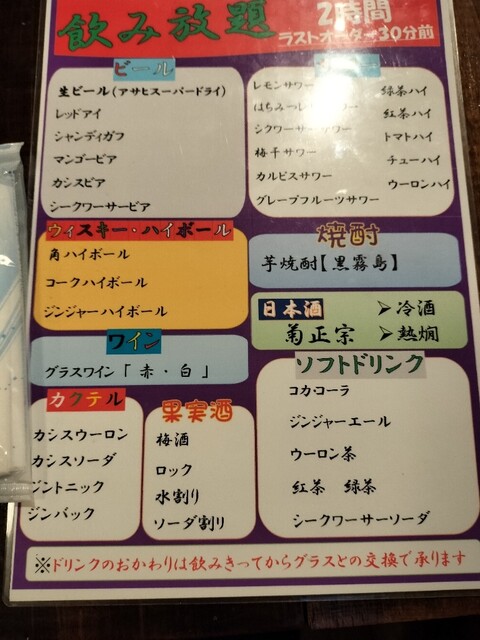 飲み放題
2時間
ラストオーダー30分前
ビール
生ビール(アサヒスーパードライ)
レッドアイ
シャンディガフ
マンゴービア
カシスビア
シークワーサービア
レモンサワー
はちみつレ
シクワーサー
梅干サワー
カルピスサワー
グレープフルーツサワー
緑茶ハイ
紅茶ハイ
トマトハイ
チューハイ
ウーロンハイ
ウィスキー・ハイボール
角ハイボール
コークハイボール
ジンジャーハイボール
焼酎
芋焼酎【黒霧島】
日本酒
菊正宗
➤冷酒
➤熱燗
ワイン
グラスワイン「赤・白」
カクテル
カシスウーロン
カシスソーダ
ジントニック
ジンバック
果実酒
梅酒
ロック
水割り
ソーダ割り
ソフトドリンク
コカ・コーラ
ジンジャーエール
ウーロン茶
紅茶 緑茶
シークワーサーソーダ
※ドリンクのおかわりは飲みきってからグラスとの交換で承ります